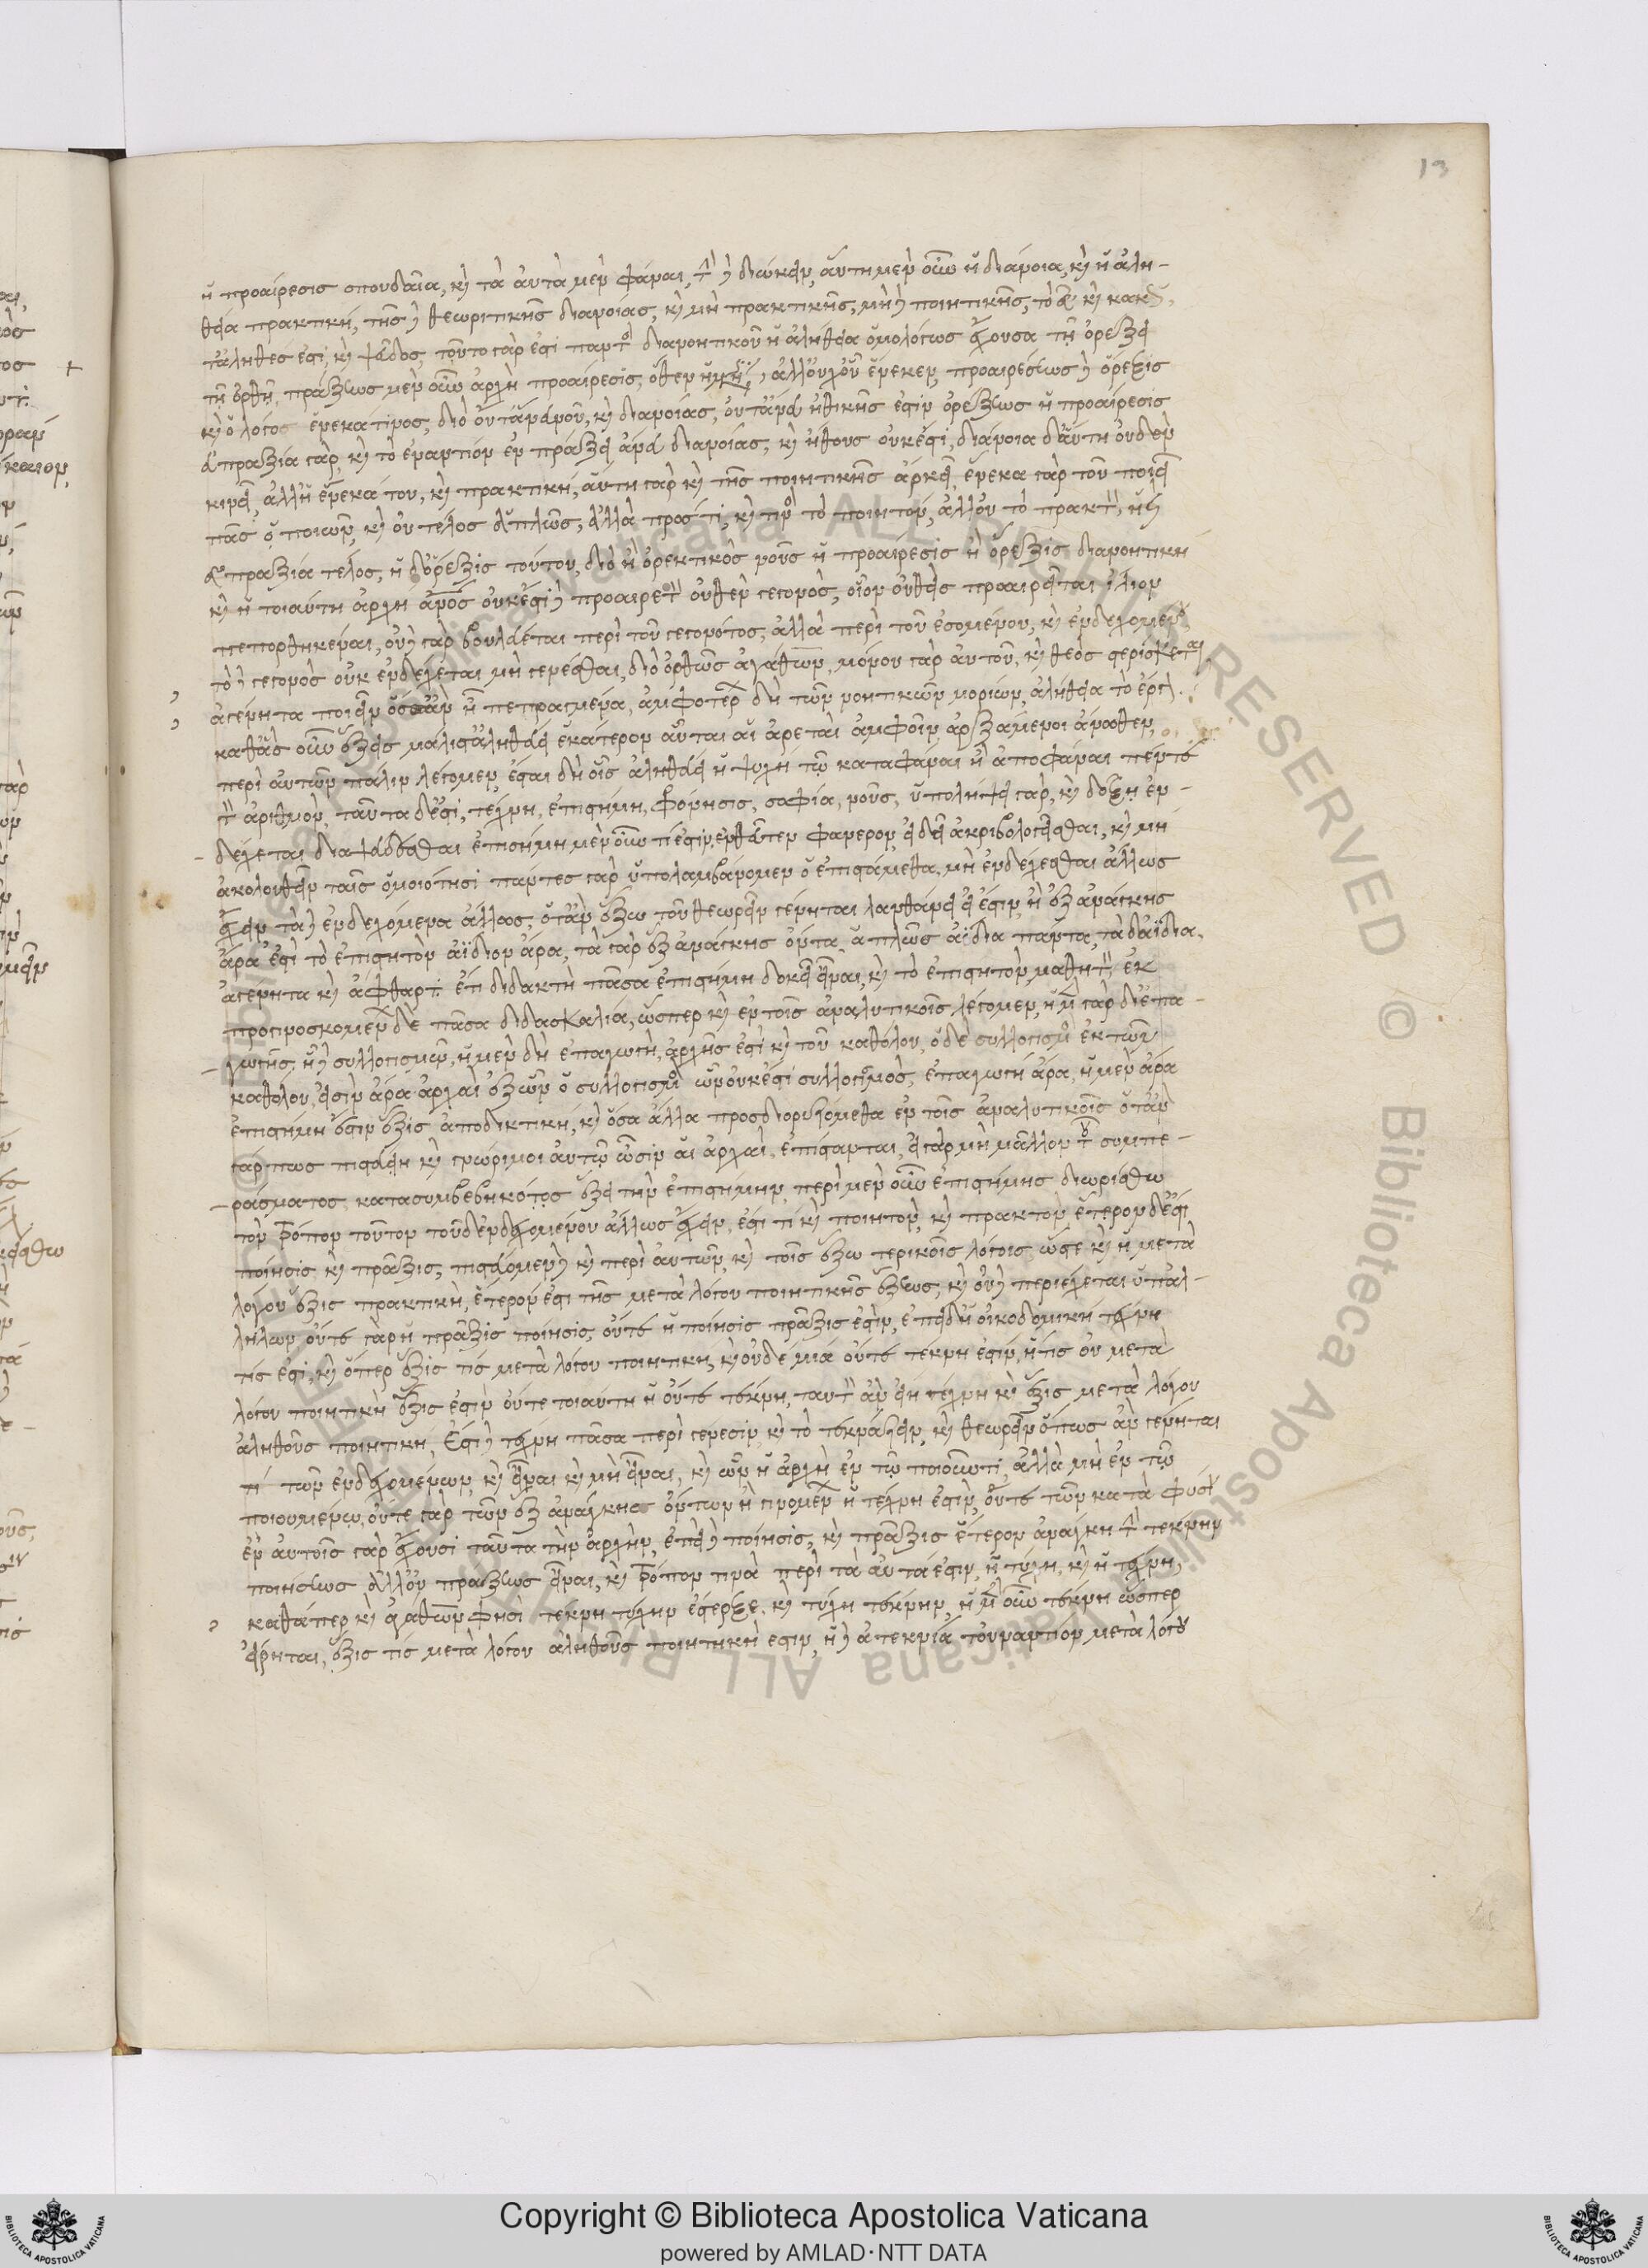 13
ἡ προαίρεσις σπουδαία, καὶ τὰ αὐτὰ μὲν φάναι, τὴν δὲ διώκειν, αὕτη μὲν οὖν ἡ διάνοια, καὶ ἡ ἀλη-
θεία πρακτική, τῆς δὲ θεωριτικῆς διανοίας, καὶ μὴ πρακτικῆς, μὴ δὲ ποιητικῆς, τὸ εὖ καὶ κακῶς
τἀληθές ἐστι, καὶ ψεῦδος, τοῦτο γάρ ἐστι παντὸς διανοητικοῦ ἡ ἀλήθεια ὁμολόγως ἔχουσα τῇ ὀρέξει
τῇ ὀρθῇ, πράξεως μὲν οὖν ἀρχὴ προαίρεσις, ὅθεν ἡ κίνησις, ἀλλ' οὐχ οὗ ἕνεκεν, προαιρέσεως δὲ ὄρεξις
καὶ ὁ λόγος ἕνεκά τινος, διὸ οὔτ' ἄνευ νοῦ, καὶ διανοίας, οὔτ' ἄνευ ἠθικῆς ἐστὶν ὀρέξεως ἡ προαίρεσις
εὐπραξία γὰρ, καὶ τὸ ἐναντίον ἐν πράξει ἄνευ διανοίας, καὶ ἤθους οὐκ ἔστι, διάνοια δ' αὕτη οὐδὲν
κινεῖ, ἀλλ' ἡ ἕνεκά του, καὶ πρακτική, αὕτη γὰρ καὶ τῆς ποιητικῆς ἄρχει, ἕνεκα γὰρ τοῦ ποιεῖ
πᾶς ὁ ποιῶν, καὶ οὐ τέλος ἁπλῶς, ἀλλὰ πρός τι, καὶ τινὸς τὸ ποιητόν, ἀλλ' οὐ τὸ πρακτὸν, ἡ γὰρ
εὐπραξία τέλος, ἡ δ' ὄρεξις τούτου, διὸ ἢ ὀρεκτικὸς νοῦς ἡ προαίρεσις ἢ ὄρεξις διανοητική
καὶ ἡ τοιαύτη ἀρχὴ ἄνθρωπος οὐκ ἔστι δὲ προαιρετὸν οὐθὲν γεγονὸς, οἷον οὐθεὶς προαιρεῖται ἴλιον
πεπορθηκέναι, οὐδὲ γὰρ βουλεύεται περὶ τοῦ γεγονότος, ἀλλὰ περὶ τοῦ ἐσομένου, καὶ ἐνδεχομένου
τὸ δὲ γεγονὸς οὐκ ἐνδέχεται μὴ γενέσθαι, διὸ ὀρθῶς ἀγάθων, μόνου γὰρ αὐτοῦ, καὶ θεὸς στερίσκεται
ἀγένητα ποιεῖν ὅσσ' ἂν ᾖ πεπραγμένα, ἀμφοτέρων δὴ τῶν νοητικῶν μορίων, ἀλήθεια τὸ ἔργον.
καθ' ἃς οὖν ἕξεις μάλιστ' ἀληθεύει ἑκάτερον αὗται αἱ ἀρεταὶ ἀμφοῖν ἀρξάμενοι ἄνωθεν,
περὶ αὐτῶν πάλιν λέγομεν, ἔσται δὴ οἷς ἀληθεύει ἡ ψυχὴ τῷ καταφάναι ἢ ἀποφάναι πέντε
τὸν ἀριθμὸν, ταῦτα δ' ἐστι, τέχνη, ἐπιστήμη, φρόνησις, σοφία, νοῦς, ὑπολήψει γὰρ, καὶ δόξῃ ἐν-
δέχεται διαψεύδεσθαι ἐπιστήμη μὲν οὖν τί ἐστιν ἐνθεῦτεν φανερον, εἰ δεῖ ἀκριβολογεῖσθαι, καὶ μὴ
ἀκολουθεῖν ταῖς ὁμοιότησι παντες γὰρ ὑπολαμβάνομεν ὃ ἐπιστάμεθα μὴ ἐνδέχεσθαι ἄλλως
ἔχειν τὰ δὲ ἐνδεχόμενα ἄλλως, ὅταν ἔξω τοῦ θεωρεῖν γένηται λανθάνει εἰ ἔστιν, ἢ ἐξ ἀνάγκης
ἄρα ἐστὶ τὸ ἐπιστητὸν ἀΐδιον ἄρα, τὰ γὰρ ἐξ ἀνάγκης ὄντα ἁπλῶς ἀΐδια πάντα, τὰ δ' ἀΐδια
ἀγένητα καὶ ἄφθαρτα ἔτι διδακτὴ πᾶσα ἐπιστήμη δοκεῖ εἶναι, καὶ τὸ ἐπιστητὸν μαθητὸν, ἐκ
προγινοσκομένων δὲ πᾶσα διδασκαλία, ὥσπερ καὶ ἐν τοῖς ἀναλυτικοῖς λέγομεν, ἡ μὲν γὰρ δι' ἐπα-
γωγῆς, ἡ δὲ συλλογισμῶ, ἡ μὲν δὴ ἐπαγωγὴ, ἀρχῆς ἐστὶ καὶ τοῦ καθόλου, ὁ δὲ συλλογισμὸς ἐκ τῶν
καθόλου, εἰσὶν ἄρα ἀρχαὶ ἐξ ὧν ὁ συλλογισμὸς ὧν οὐκ ἔστι συλλογισμὸς, ἐπαγωγὴ ἄρα, ἡ μὲν ἄρα
ἐπιστήμη ἐστὶν ἕξις ἀποδικτική, καὶ ὅσα ἄλλα προσδιοριζόμεθα ἐν τοῖς ἀναλυτικοῖς ὅταν
γάρ πως πιστεύῃ καὶ γνώριμοι αὐτῷ ὦσιν αἱ ἀρχαὶ, ἐπίσταται, εἰ γὰρ μὴ μᾶλλον τοῦ συμπε-
ράσματος κατασυμβεβηκότος ἕξει τὴν ἐπιστήμην, περὶ μὲν οὖν ἐπιστήμης διωρίσθω
τὸν τρόπον τοῦτον τοῦ δ' ἐνδεχομένου ἄλλως ἔχειν, ἔστι τί καὶ ποιητὸν, καὶ πρακτὸν ἕτερον δ' ἐστι
ποίησις καὶ πρᾶξις, πιστεύομεν δὲ καὶ περὶ αὐτῶν, καὶ τοῖς ἐξωτερικοῖς λόγοις, ὥστε καὶ ἡ μετὰ
λόγου ἕξις πρακτικὴ, ἕτερόν ἐστι τῆς μετὰ λόγου ποιητικῆς ἕξεως, καὶ οὐδὲ περιέχεται ὑπ' ἀλ-
λήλων, οὔτε γὰρ ἡ πρᾶξις ποίησις, οὔτε ἡ ποίησις πρᾶξις ἐστὶν, ἐπεὶ δ' ἡ οἰκοδομικὴ τέχνη
τίς ἐστι, καὶ ὅπερ ἕξις τίς μετὰ λόγου ποιητικη, καὶ οὐδέ μιά οὔτε τέχνη ἐστὶν, ἥτις οὐ μετὰ
λόγου ποιητικὴ ἕξις ἐστὶν οὔτε τοιαύτη ἡ οὔτε τέχνη, ταυτὸν ἂν εἴη τέχνη καὶ ἕξις μετὰ λόγου
ἀληθοῦς ποιητικη, Ἐστὶ δὲ τέχνη πᾶσα περὶ γένεσιν, καὶ τὸ τεχνάζειν, καὶ θεωρεῖν ὅπως ἂν γένηται
τί τῶν ἐνδεχομένων, καὶ εἶναι καὶ μὴ εἶναι, καὶ ὧν ἡ ἀρχὴ ἐν τῷ ποιοῦντι, ἀλλὰ μὴ ἐν τῷ
ποιουμένῳ, οὔτε γὰρ τῶν ἐξ ἀνάγκης ὄντων ἢ γινομένων ἡ τέχνη ἐστὶν, οὔτε τῶν κατὰ φύσιν
ἐν αὐτοῖς γὰρ ἔχουσι ταῦτα τὴν ἀρχὴν, ἐπεὶ δὲ ποίησις, καὶ πρᾶξις ἕτερον ἀνάγκη τὴν τέχνην
ποιήσεως ἀλλ' οὐ πράξεως εἶναι, καὶ τρόπον τινὰ περὶ τὰ αὐτά ἐστιν, ἡ τύχη, καὶ ἡ τέχνη,
καθάπερ καὶ ἀγάθων φησὶ τέχνη τύχην ἔστερξε, καὶ τύχη τέχνην, ἡ μὲν οὖν τέχνη ὥσπερ
εἴρηται, ἕξις τίς μετὰ λόγου ἀληθοῦς ποιητηκὴ ἐστιν, ἡ δὲ ἀτεχνία τοὐναντίον μετὰ λόγου
Copyright © Biblioteca Apostolica Vaticana
powered by AMLAD・NTT DATA